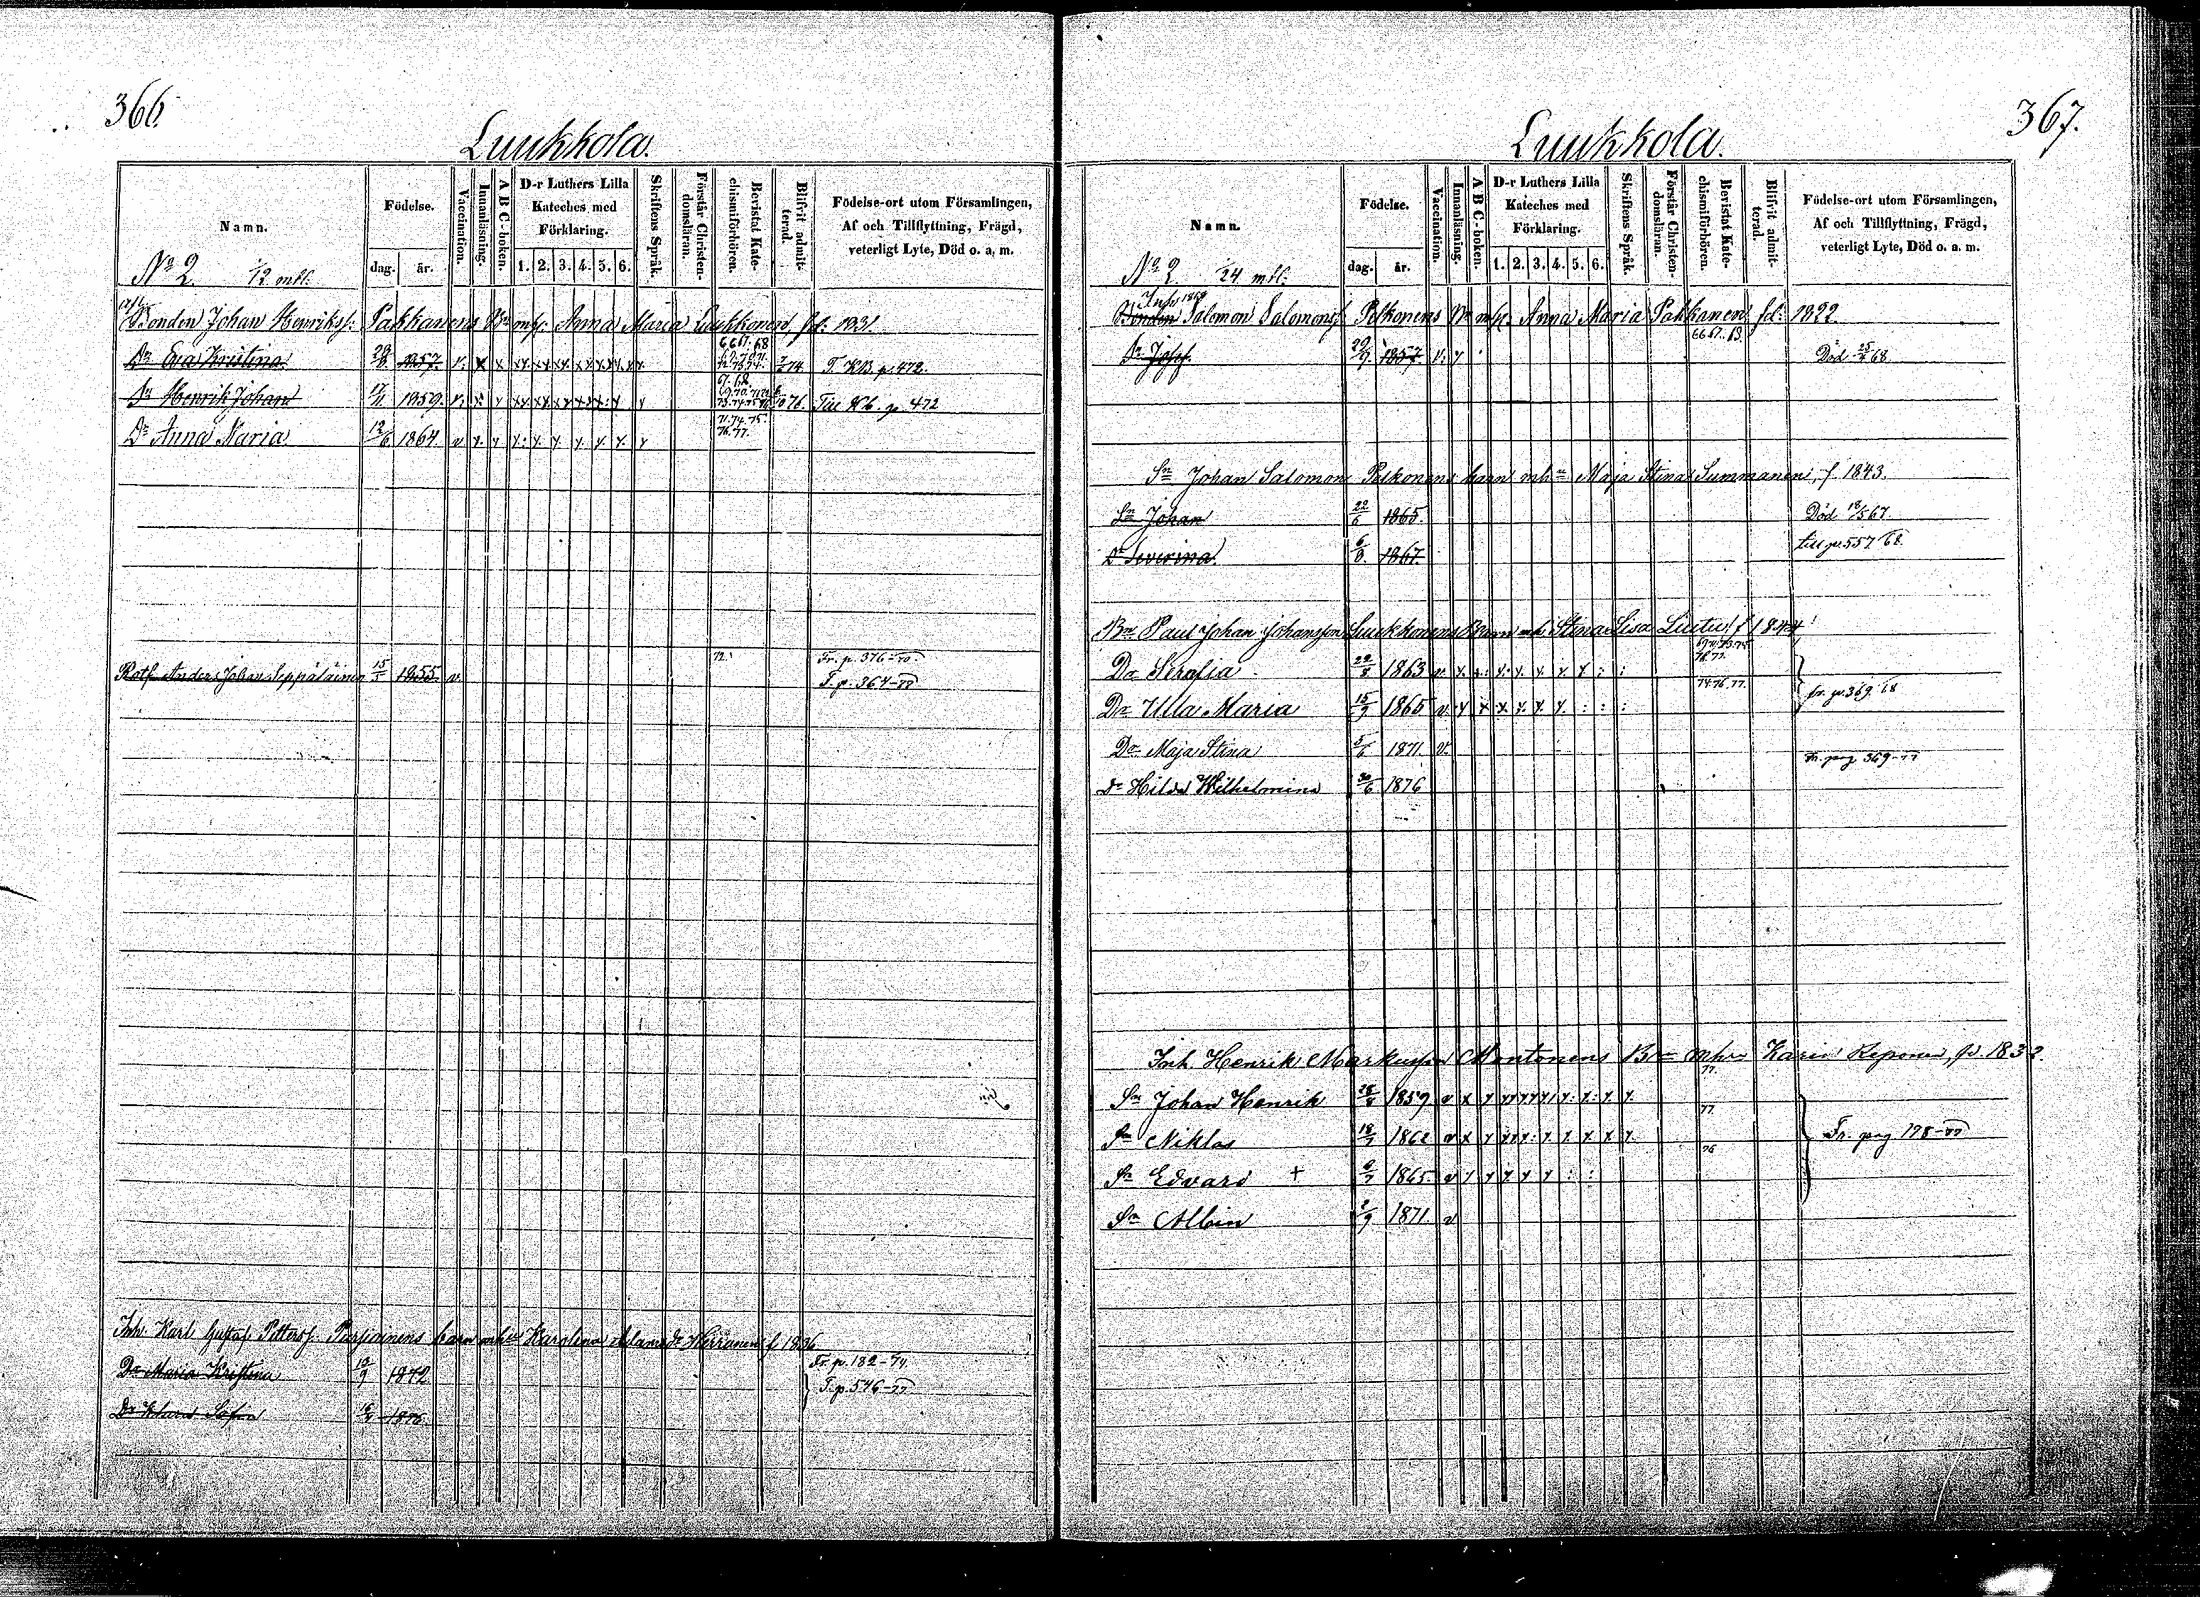 366.
Luukkola.
Namn.
Födelse.
dag. år.
Vaccination.
Innanläsning.
A B C-boken.
D-r Luthers Lilla Kateches med Förklaring.
1. 2. 3. 4. 5. 6.
Skriftens Språk.
Förstår Christendomsläran.
Bevistat Katechismiförhören.
Blifvit admitterad.
Födelse-ort utom Församlingen, Af och Tillflyttning, Frägd, veterligt Lyte, Död o. a. m.
No 2. 1/12 mtl:
Bonden Johan Henrikss: Pakkanens Bn m/h: Anna Maria Luukkonen fd: 1831.
66 67. 68
Dr Eva Kristina 1857. v. 7/7 74 T. KB. p. 472.
67. 68.
Sn Henrik Johan 17/11 1859. 76. Till Kb. p 472
71. 74. 75.
76. 77.
Dr Anna Maria 12/6 1864 v
72. Fr. p. 376-70.
Rotf Anders Johan Seppäläinen 15/1 1855 v. T. p. 364-77
Inh. Karl Gustaf Petterss. barn mh Karolina Hirvonen f. 1836
Fr. p. 182-74.
Dr Maria Kristina 1872 T. p. 546-77
Dr Sofia 1876.
367.
Luukkola.
Namn.
Födelse.
dag. år.
Vaccination.
Innanläsning.
A B C-boken.
D-r Luthers Lilla Kateches med Förklaring.
1. 2. 3. 4. 5. 6.
Skriftens Språk.
Förstår Christendomsläran.
Bevistat Katechismiförhören.
Blifvit admitterad.
Födelse-ort utom Församlingen, Af och Tillflyttning, Frägd, veterligt Lyte, Död o. a. m.
No 2 1/24 mtl:
Inh. 1868
Bonden Salomon Salomonss Pelkonens Bn m/h. Anna Maria Pakkanen fd: 1822.
66 67.
Sn Josef. 29/9 1857 v. Död 25/4 68.
Sn Johan Salomon Pelkonens barn mh Maja Stina Summanen, f. 1843.
Sn Johan 22/6 1865. Död 18/5 67.
Dr Severina. 6/8. 1867. till p. 557 68.
Bn Paul Johan Johansson Luukkonens Barn mh Stina Lisa Liutu f 1844
Dr Serafia 22/8 1863 v.
74 76. 77.
Dr Ulla Maria 15/9 1865 v. fr. p. 369. 68
Dr Maja Stina 5/6 1871. v. Fr. pag 369-77
Dr Hilda Wilhelmina 30/6 1876
Inh. Henrik Markusson Montonens Bn mhu Karin Reponen, fd. 1832.
77.
Sn Johan Henrik 28/8 1859 v
77.
Sn Niklas 18/7 1862 v Fr. pag 178-77
76
Sn Edvard + 1865. v
Sn Albin 2/9 1871 v